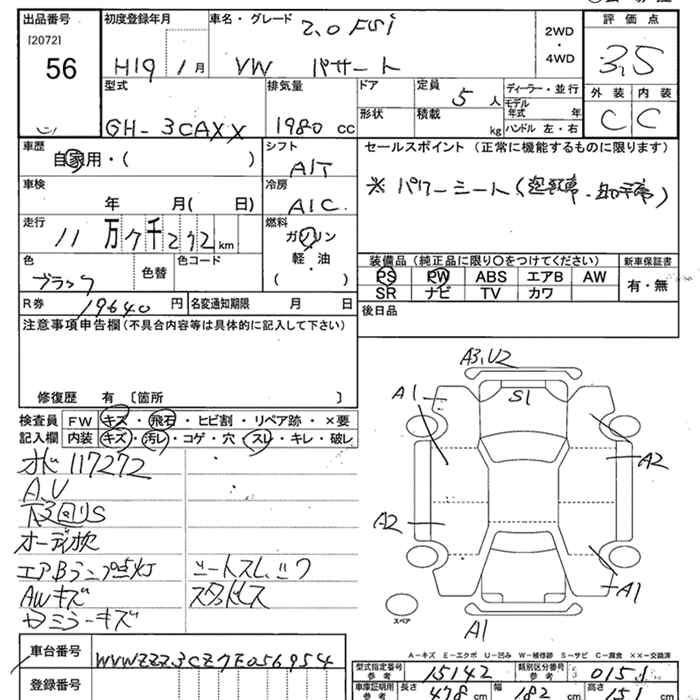 出品番号
[2072]
56
初度登録年月
H19 1月
車名・グレード
2.0 FSi
VW パサート
2WD
・
4WD
評価点
3.5
外装 内装
C C
型式
GH-3CAXX
排気量
1980 cc
ドア
形状
定員
5人
積載
kg
ディーラー・並行
モデル年式 年
ハンドル 左・右
車歴
自家用・( )
シフト
AIT
車検
年 月( 日)
冷房
AIC
走行
11万7千272km
燃料
ガソリン
軽・油
( )
色
ブラック
色替
色コード
R券 19640円
名変通知期限 月 日
セールスポイント (正常に機能するものに限ります)
※ パワーシート(運転席・助手席)
装備品(純正品に限り〇をつけてください)
新車保証書
PS PW ABS エアB AW
SR ナビ TV カワ
有・無
後日品
注意事項申告欄(不具合内容等は具体的に記入して下さい)
修復歴 有〔箇所 〕
検査員記入欄
FW キズ・飛石・ヒビ割・リペア跡・×要
内装 キズ・汚レ・コゲ・穴・スレ・キレ・破レ
117272
A.U
下回りS
オーディオ欠
エアBランプ点灯
AWキズ
ドミラーキズ
スタッドレス
A3,U2
S1
A1
A2
A2
A1
A1
スペア
A-キズ E-エクボ U-凹み W-補修跡 S-サビ C-腐食 ××-交換済
車台番号
WVWZZZ3CZ7E056954
登録番号
型式指定番号 参考 15142
類別区分番号 参考 0151
車庫証明用 参考 長さ 478cm 幅 182cm 高さ 151cm